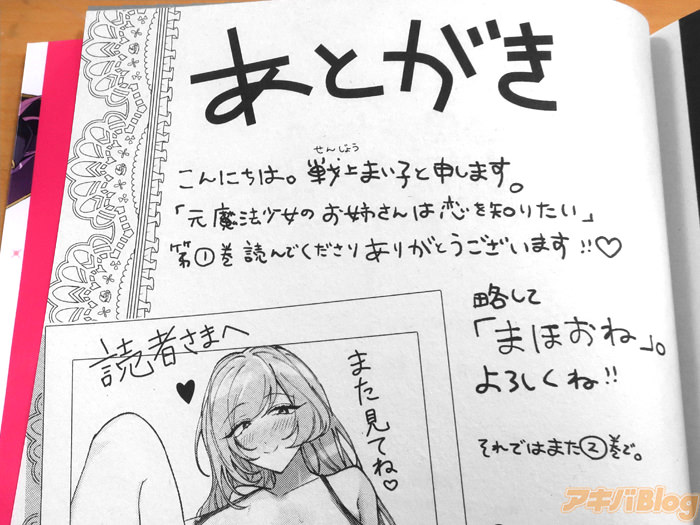 あとがき
せんじょう
こんにちは。戦上まい子と申します。
「元魔法少女のお姉さんは恋を知りたい」
第①巻読んでくださりありがとうございます!!♡
略して
「まほおね」。
よろしくね!!
それではまた②巻で。
読者さまへ
また見てね♡
アキバBlog